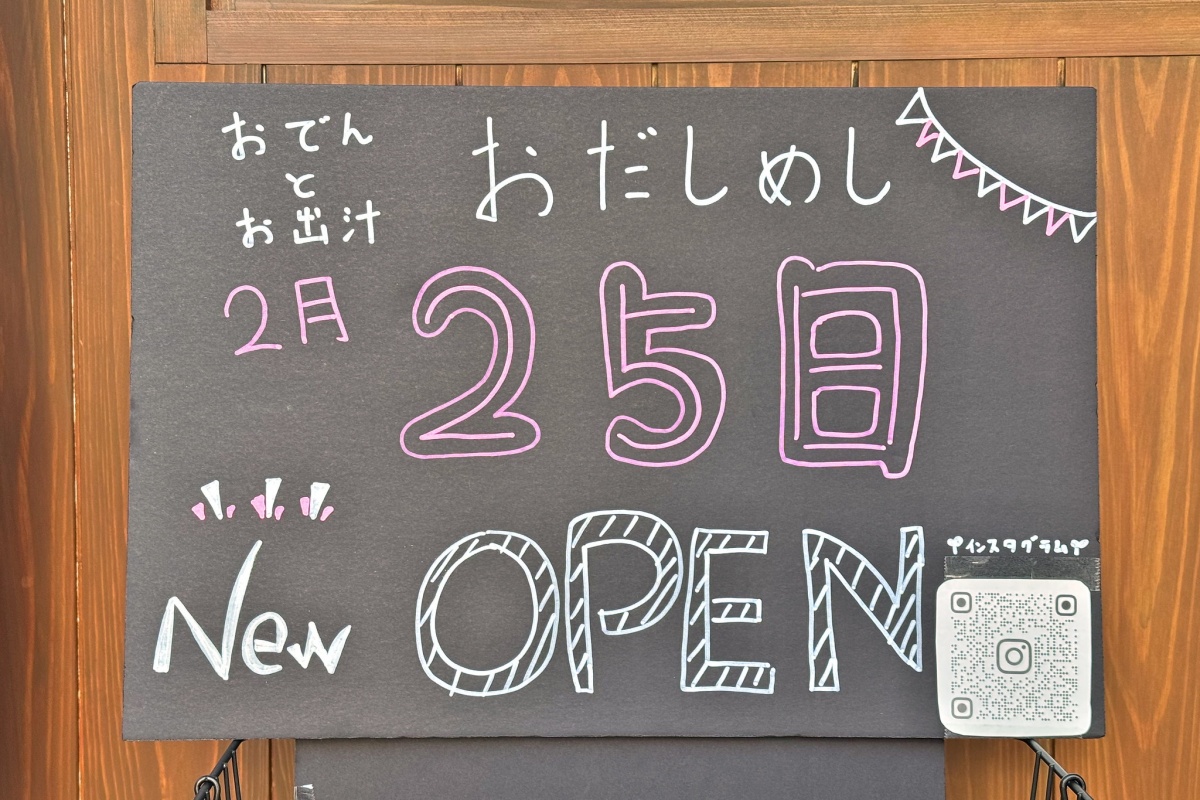 おでん
と
お出汁
おだしめし
2月
25日
New
OPEN
インスタグラム